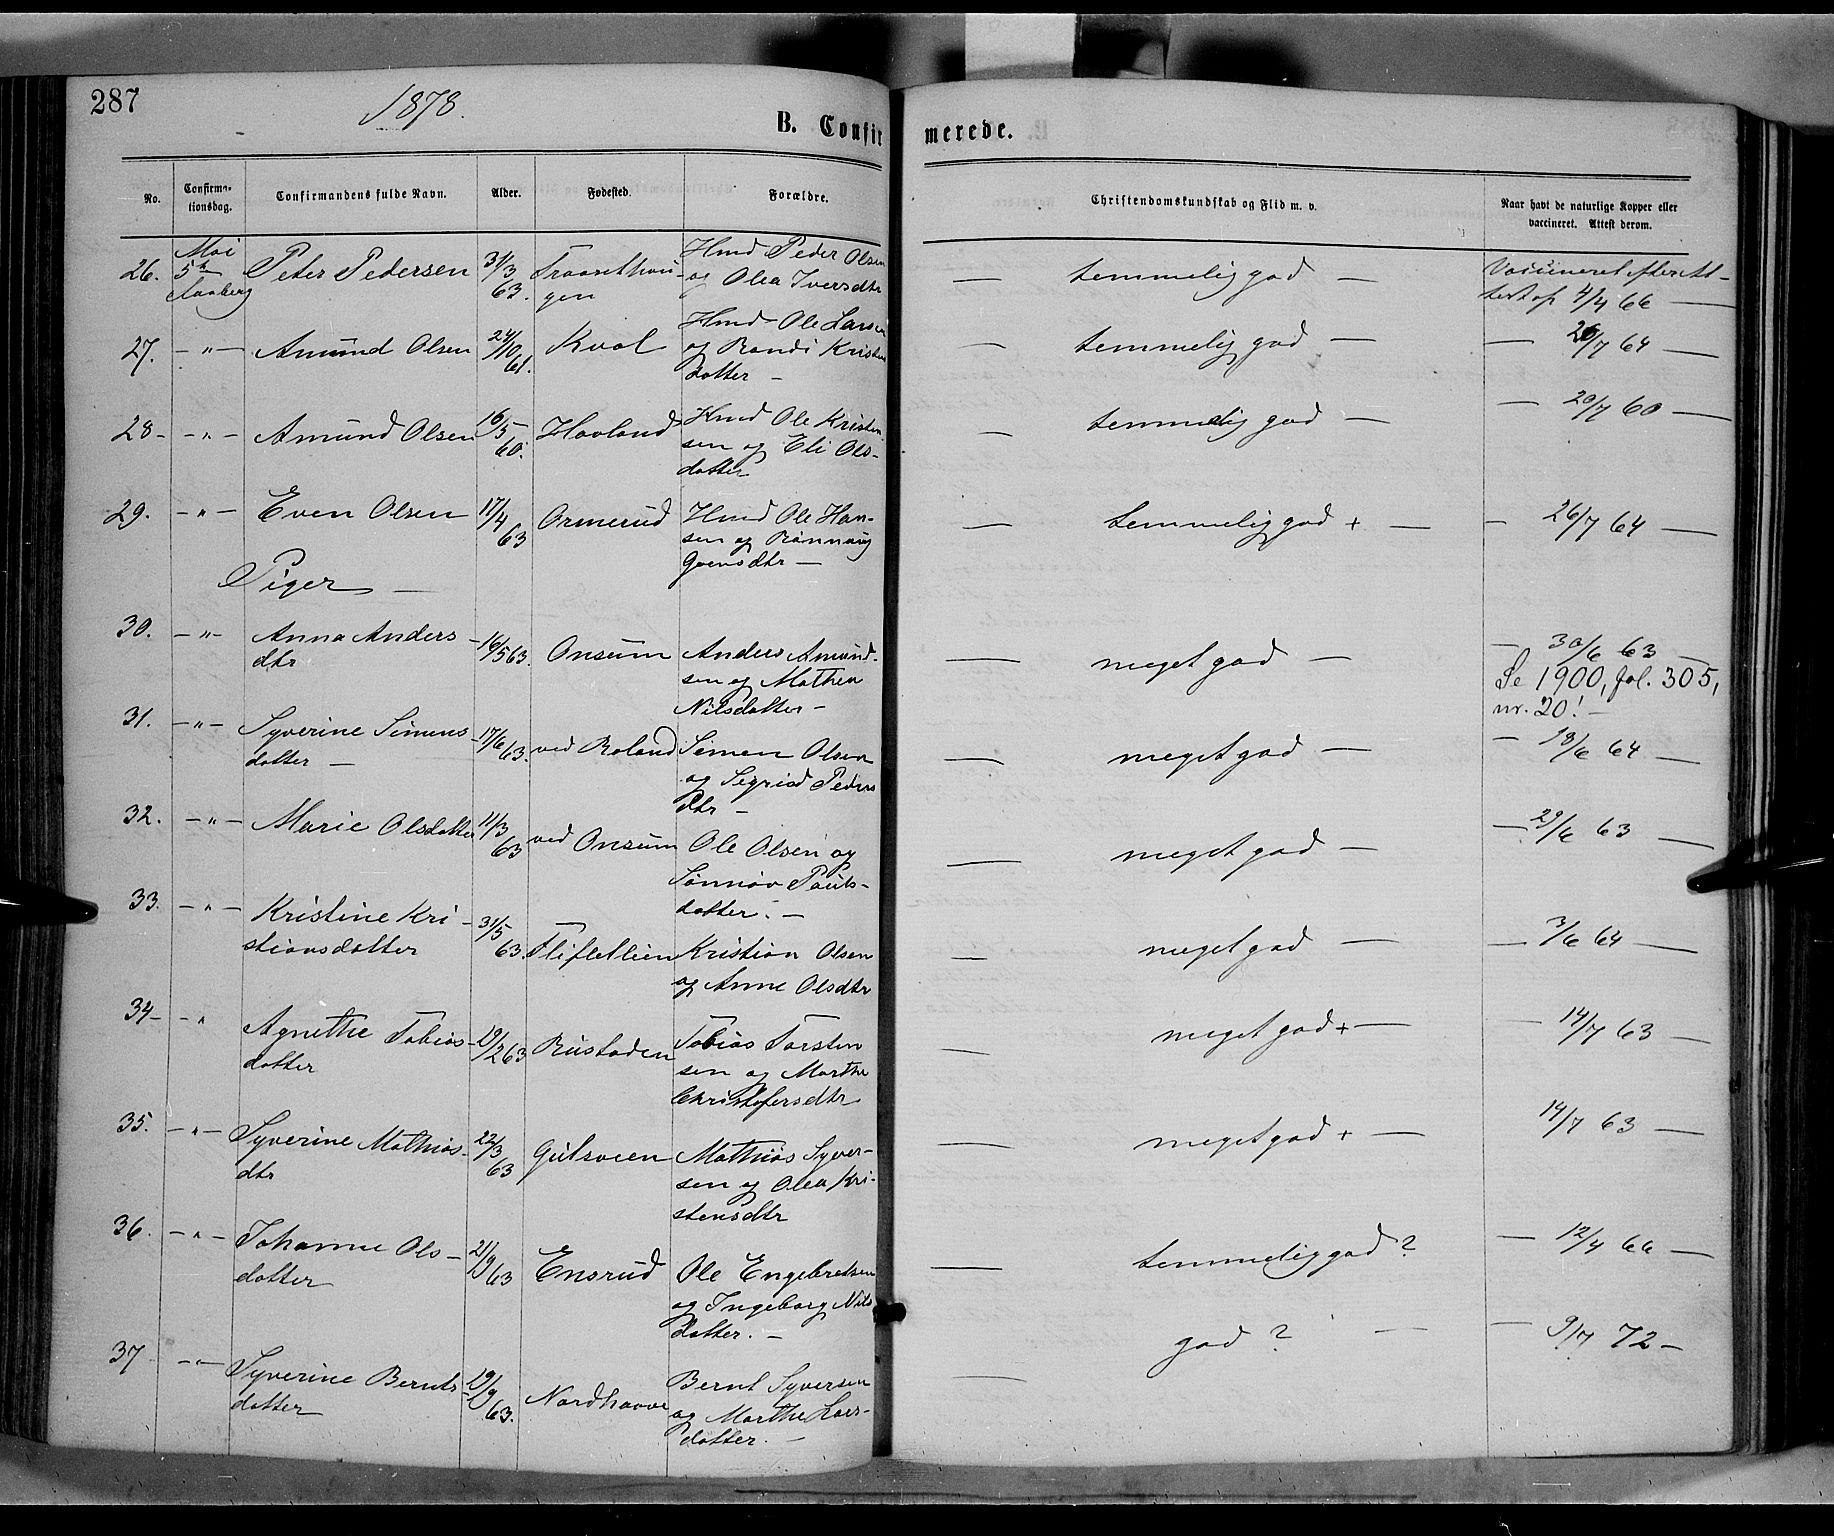 287
1878.
B. Confir
merede.
No.
Confirma-
tionsdag.
Confirmandens fulde Navn.
Alder.
Fødested.
Forældre.
Christendomskundskab og Flid m. v.
Naar havt de naturlige Kopper eller
vaccineret. Attest derom.
26.
Mai
5te
Faaberg
Peter Pedersen
31/3
63.
Traasethau-
gen
Hmd Peder Olsen
og Olea Iversdtr
— temmelig god —
Vaccineret efter At-
test af 4/4 66 —
27. —„— Amund Olsen
24/10
61.
Kval
Hmd Ole Larsen
og Randi Kristen
datter —
— temmelig god —
— 26/7 64 —
28- —„— Amund Olsen
16/5
60.
Havland
Hmd Ole Kristen
sen og Eli Ols-
datter
— temmelig god —
— 20/7 60 —
29. —„— Even Olsen
17/4
63
Ormerud
Hmd Ole Han-
sen og Rønnaug
Goensdtr —
— temmelig god + —
— 26/7 64 —
Piger —
30. —„— Anna Anders-
dtr
16/5 63.
Onsum
Anders Amund-
sen og Mathea
Nilsdatter —
— meget god —
— 30/6 63 —
Se 1900, fol. 305,
nr. 20! —
31. —„— Syverine Simens-
datter —
17/6 63.
ved Roland
Simen Olsen
og Sigrid Peders
dtr —
— meget god —
— 18/6 64 —
32. —„— Marie Olsdatter
11/3
63
ved Onsum
Ole Olsen og
Sønnøv Pouls-
datter. —
— meget god —
— 29/6 63 —
33. —„— Kristine Kri-
stiansdatter
31/5
63.
Flifletlien
Kristian Olsen
og Anne Olsdtr
— meget god —
— 3/6 64 —
34- —„ Agnethe Tobias-
datter
19/2 63
Rustaden
Tobias Torsten
sen og Marthe
Christofersdtr
— meget god + —
— 14/7 63 —
35. —„— Syverine Mathias-
dtr
22/3
63
Gulsveen
Mathias Syver-
sen og Olea Kri-
stensdtr
— meget god + —
14/7 63 —
36. —„— Johanne Ols-
datter
21/9 63
Ensrud
Ole Engebretsen
og Ingeborg Nils
datter. —
— temmelig god ?
— 12/4 66 —
37 —„— Syverine Bernts-
datter
29/9
63.
Nordhaave
Bernt Syversen
og Marthe Lars-
datter. —
— god ? —
— 9/7 72 —